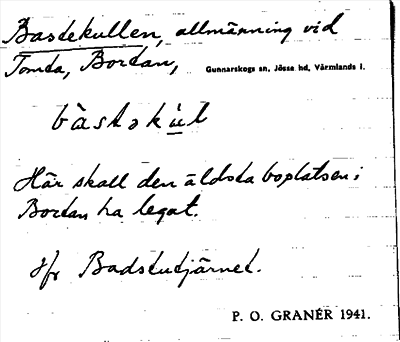 Bastekullen, allmänning vid
Tomta, Bortan,
Gunnarskogs sn, Jösse hd, Värmlands l.
bàstəkùl
Här skall den äldsta boplatsen i
Bortan ha legat.
Jfr Badstutjärnet.
P. O. GRANÉR 1941.